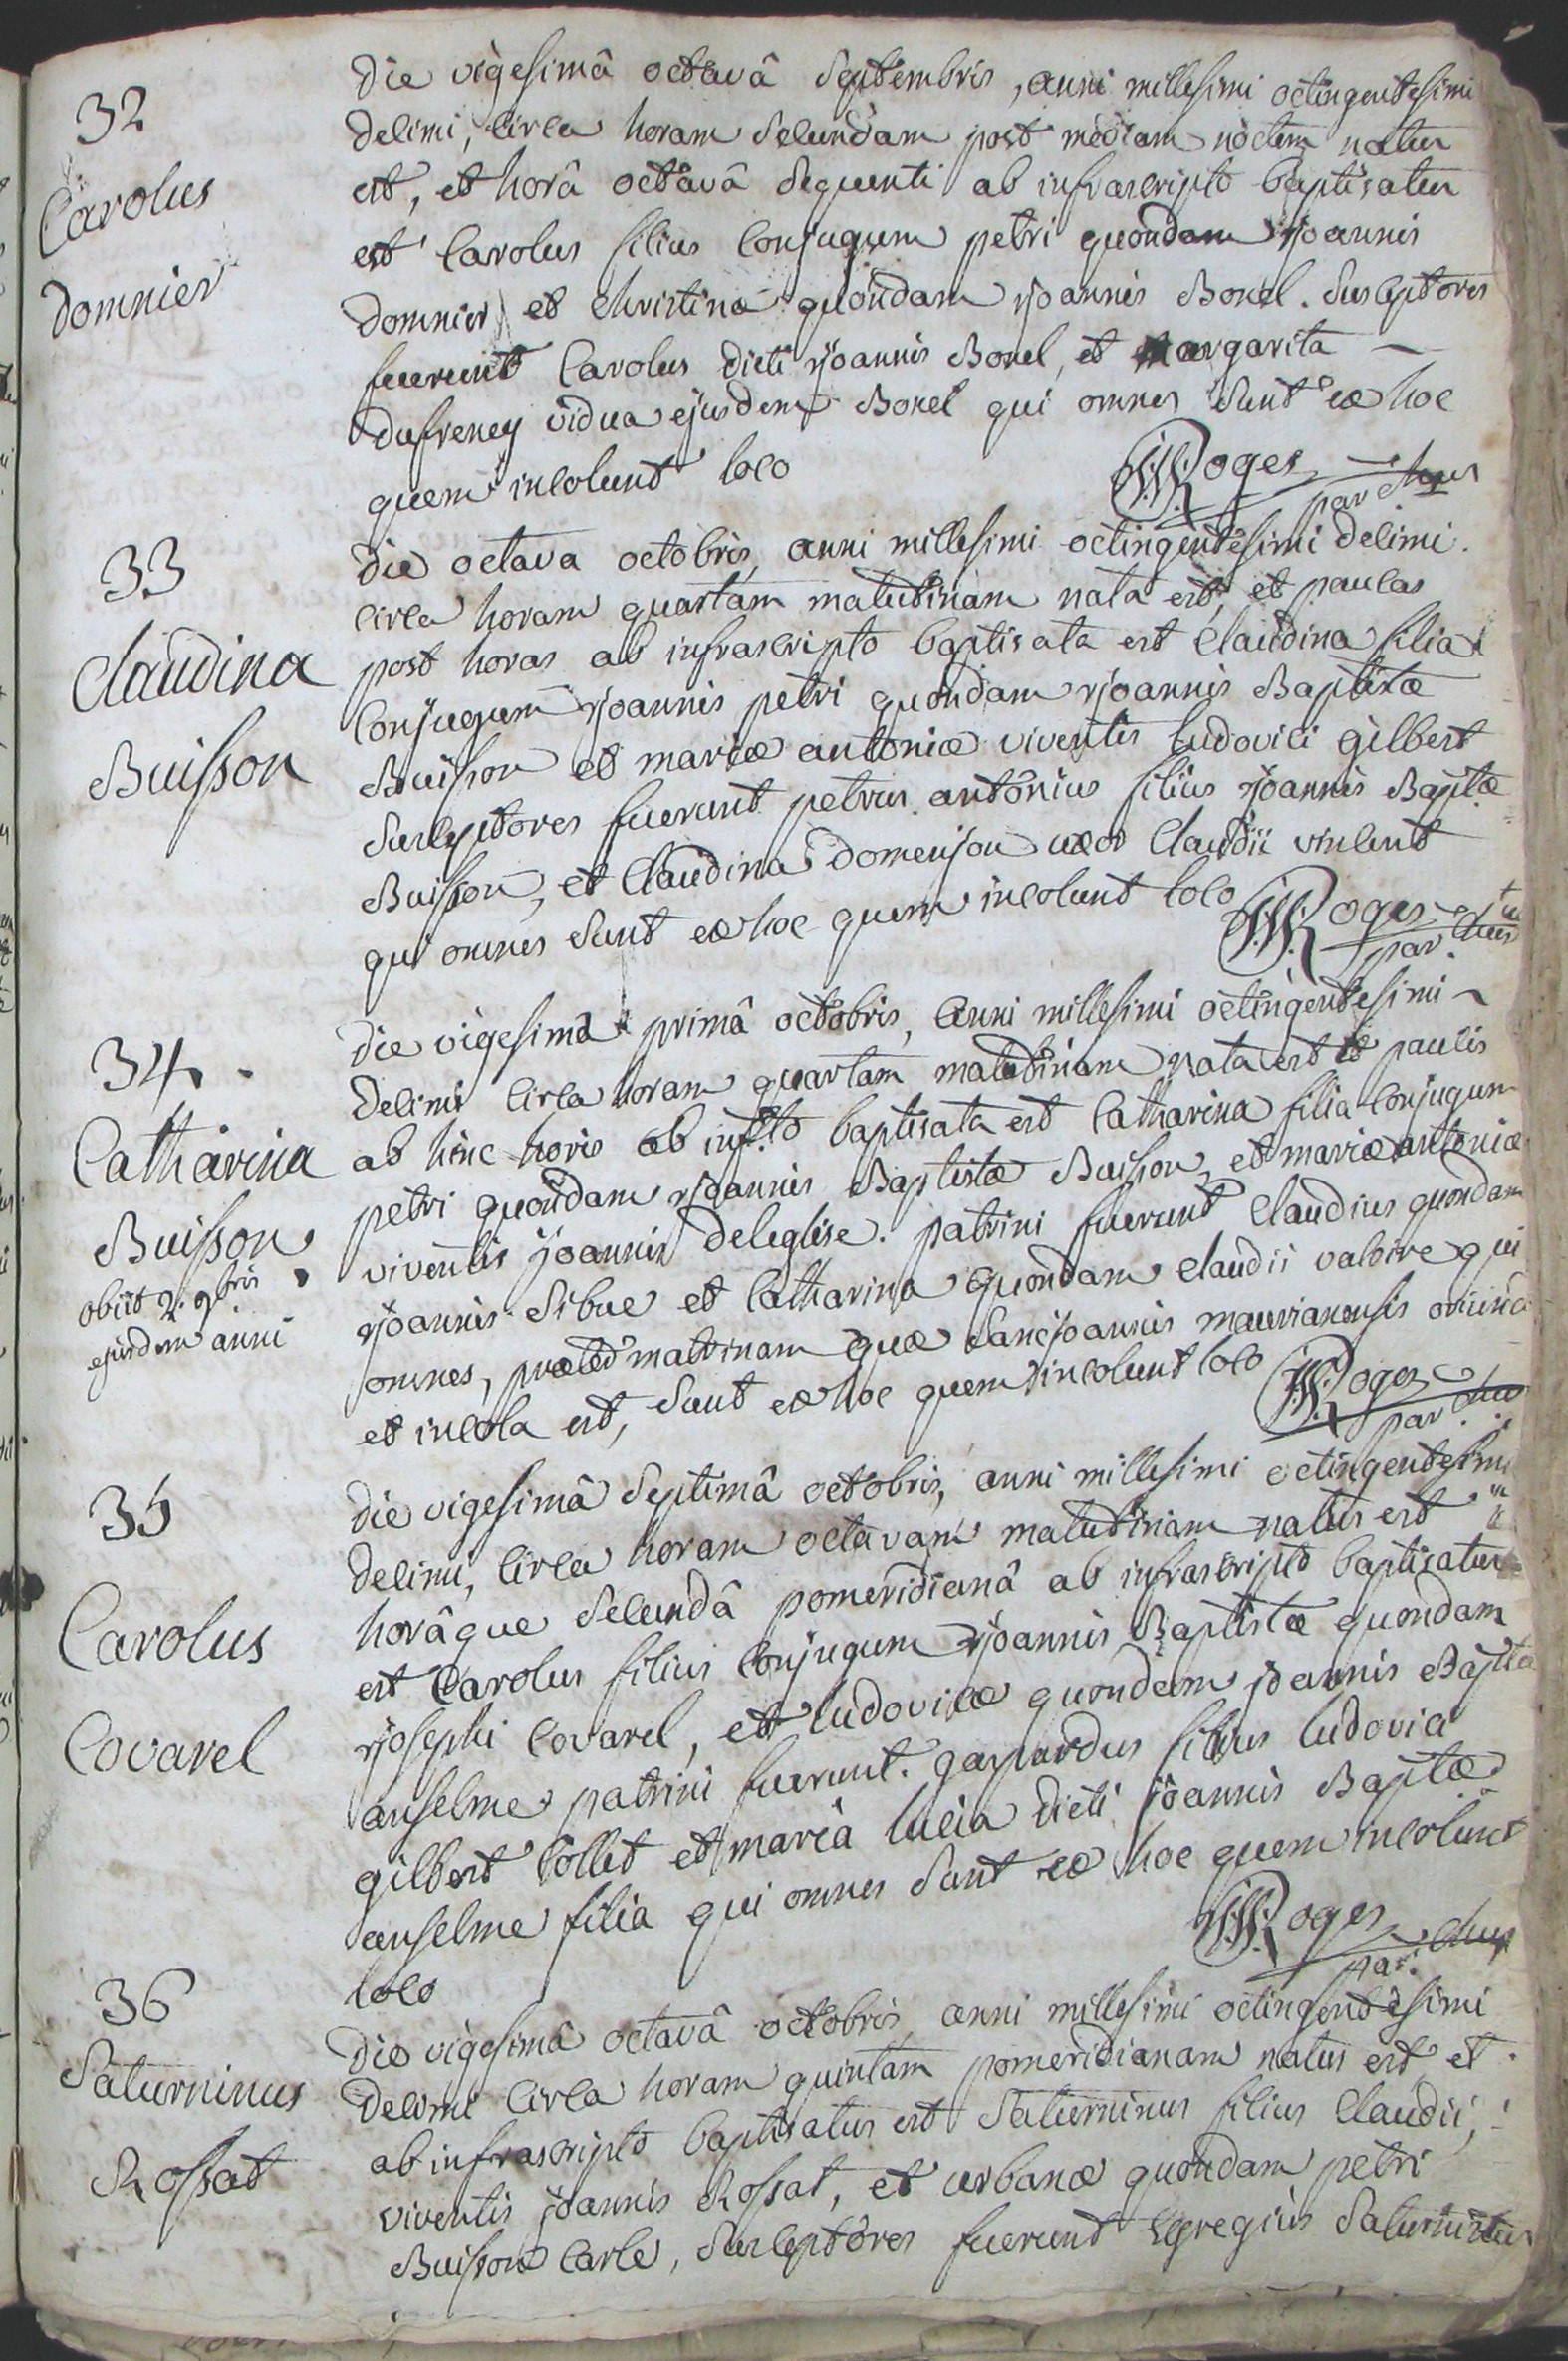 32
Carolus
Domnier
Die vigesimâ octavâ Septembris, anni millesimi octingentesimi
decimi, circa horam secundam post mediam noctem natus
est, et horâ octavâ sequenti ab infrascripto baptisatus
est Carolus filius conjugum petri quondam joannis
Domnier et Christinæ quondam joannis Borel. Susceptores
fuerunt Carolus dicti joannis Borel, et Margarita
Dufreney vidua ejusdem Borel qui omnes sunt ex hoc
quem incolunt loco
Roges parochus
33
Claudina
Buisson
Die octava octobris, anni millesimi octingentesimi decimi.
circa horam quartam matutinam nata est, et paucas
post horas ab infrascripto baptisata est Claudina filia
conjugum joannis petri quondam joannis Baptistæ
Buisson et mariæ antoniæ viventis ludovici gilbert
Susceptores fuerunt petrus antonius filius joannis Baptæ
Buisson, et Claudina Domenjon uxor Claudii vincent
qui omnes sunt ex hoc quem incolunt loco
Roges par.chus
34.
Catharina
Buisson
obiit 2. 9bris
ejusdem anni
Die vigesimâ primâ octobris, anni millesimi octingentesimi
decimi circa horam quartam matutinam nata est et paucis
ab hinc horis ab inf.to baptisata est Catharina filia conjugum
petri quondam joannis Baptistæ Buisson, et mariæ antoniæ
viventis joannis deleglise. patrini fuerunt Claudius quondam
joannis Sibue et Catharina quondam Claudii valoire qui
omnes, præter matrinam quæ Sancti joannis maurianensis oriunda
et incola est, sunt ex hoc quem incolunt loco
Roges par.chus
35
Carolus
Covarel
Die vigesimâ Septimâ octobris, anni millesimi octingentesimi
decimi, circa horam octavam matutinam natus est
horâque secundâ pomeridianâ ab infrascripto baptisatus
est Carolus filius conjugum joannis Baptistæ quondam
josephi Covarel, et ludovicæ quondam joannis Baptæ
anselme patrini fuerunt. gaspardus filius ludovici
gilbert collet et maria lucia dicti joannis Baptæ
anselme filia qui omnes sunt ex hoc quem incolunt
loco
Roges par.chus
36
Saturninus
Rossat
Die vigesimâ octavâ octobris anni millesimi octingentesimi
decimi circa horam quintam pomeridianam natus est et
ab infrascripto baptisatus est Saturninus filius Claudii,
viventis joannis Rossat, et urbanæ quondam petri
Buisson Carle, Susceptores fuerunt Egregius Saturninus